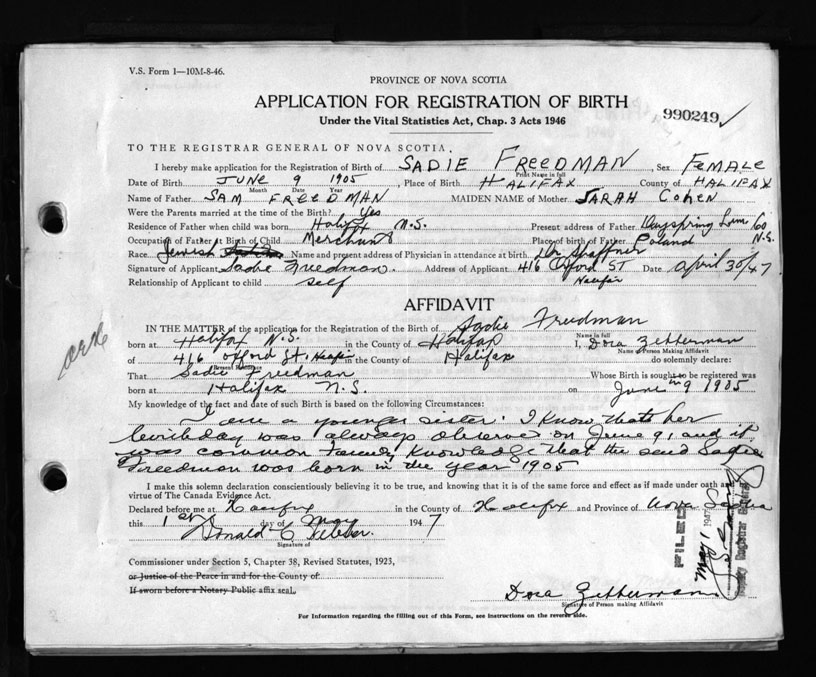 V.S. Form 1—10M-8-46.
PROVINCE OF NOVA SCOTIA
APPLICATION FOR REGISTRATION OF BIRTH
990249
Under the Vital Statistics Act, Chap. 3 Acts 1946
TO THE REGISTRAR GENERAL OF NOVA SCOTIA.
I hereby make application for the Registration of Birth of SADIE FREEDMAN, Sex FEMALE
Print Name in full
Date of Birth JUNE 9 1905, Place of Birth HALIFAX County of HALIFAX
Month Date Year
Name of Father SAM FREEDMAN MAIDEN NAME of Mother SARAH COHEN
Were the Parents married at the time of the Birth? Yes
Residence of Father when child was born, Halifx N.S. Present address of Father Dayspring Lun Co N.S.
Occupation of Father at Birth of Child Merchant Place of birth of Father Poland
Race Jewish Name and present address of Physician in attendance at birth Dr
Signature of Applicant Sadie Freedman. Address of Applicant 416 Oxford ST Halifax Date April 30/47
Relationship of Applicant to child self
AFFIDAVIT
IN THE MATTER of the application for the Registration of Birth of Sadie Freedman
Name in full
born at Halifax N.S. in the County of Halifax I, Dora Zetterman
Name of Person Making Affidavit
of 416 Oxford St. Halifax in the County of Halifax do solemnly declare:
Present Residence
That Sadie Freedman Whose Birth is sought to be registered was
born at Halifax N.S. on June 9 1905
My knowledge of the fact and date of such Birth is based on the following Circumstances:
I am a younger sister. I know that her
birthday was always observe on June 9, and it
was common Family knowledge that the said Sadie
Freedman was born in the year 1905
I make this solemn declaration conscientiously believing it to be true, and knowing that it is of the same force and effect as if made under oath and
virtue of The Canada Evidence Act.
Declared before me at Halifax in the County of Halifax and Province of Nova Scotia
this 1st day of May 1947
Donald C
Signature of
Commissioner under Section 5, Chapter 38, Revised Statutes, 1923,
or Justice of the Peace in and for the County of
If sworn before a Notary Public affix seal.
Dora Zetterman
Signature of Person making Affidavit
For Information regarding the filling out of this Form, see Instructions on the reverse side.
FILED
May 1 1947
Deputy Registrar General